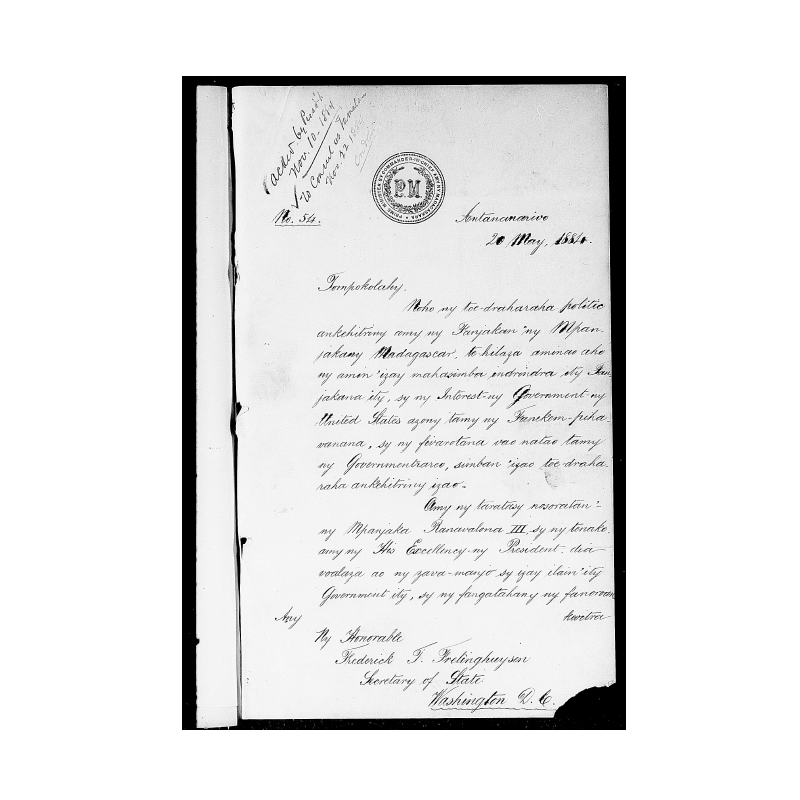 acked. by Pres't
Nov. 10. 1884
To Consul at Tamatave
Nov. 22 1884
PRIME MINISTER & COMMANDER-IN-CHIEF
P.M.
No. 54.
Antananarivo
20 May, 1884.
Tompokolahy.
Noho ny toe-draharaha politic
ankehitriny amy ny Fanjakan' ny Mpan-
jakany Madagascar, to hilaza aminao aho
ny amin' izay mahasimba indrindra ity Fan
jakana ity, sy ny Interest-ny Government-ny
United States azony tamy ny Fanekem-piha-
vanana, sy ny fivarotana vao natao tamy
ny Governmentnareo, simban' izao toe-draha-
raha ankehitriny izao.
Amy ny taratasy nosoratan'-
ny Mpanjaka Ranavalona III, sy ny tonako
amy ny His Excellency-ny President, dia
voalaza ao ny zava-manjo sy izay ilain' ity
Government ity, sy ny fangatahany ny fanorenan
Any
kevitra
Ny Honorable
Frederick T. Frelinghuysen
Secretary of State.
Washington D. C.